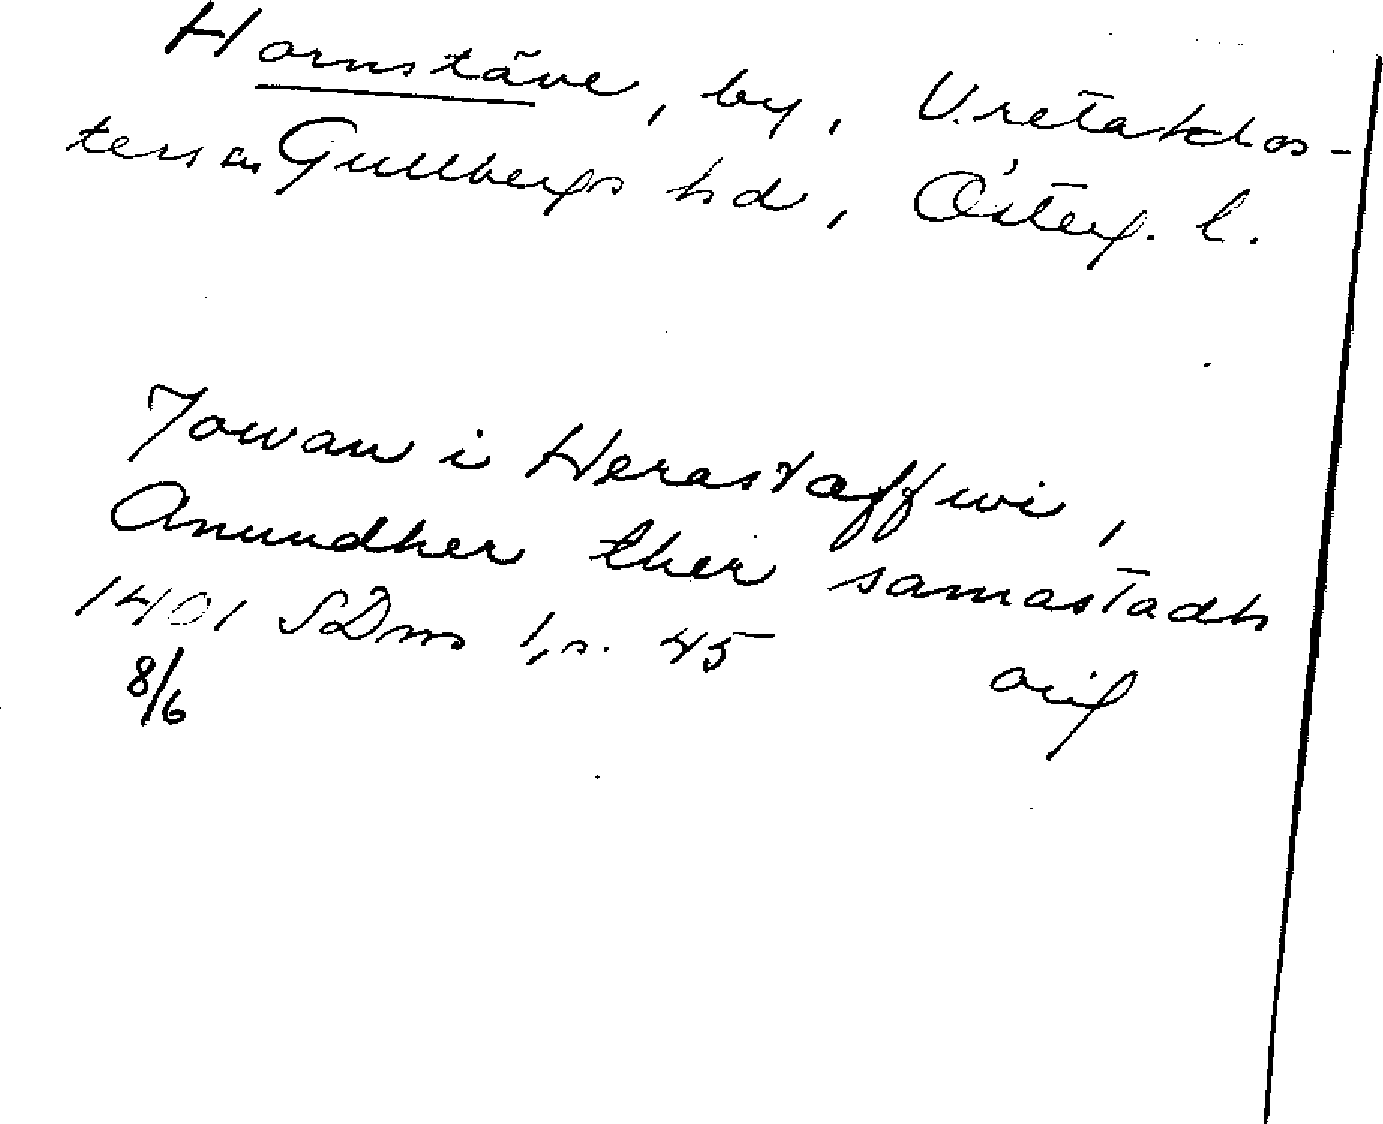 Hornstäve, by, Vretaklos-
ters sn Gullbergs hd, Österg. l.
Jowan i Herastaffwi,
Anundher ther samastadh
1401 SDns 1, s. 45 orig
8/6